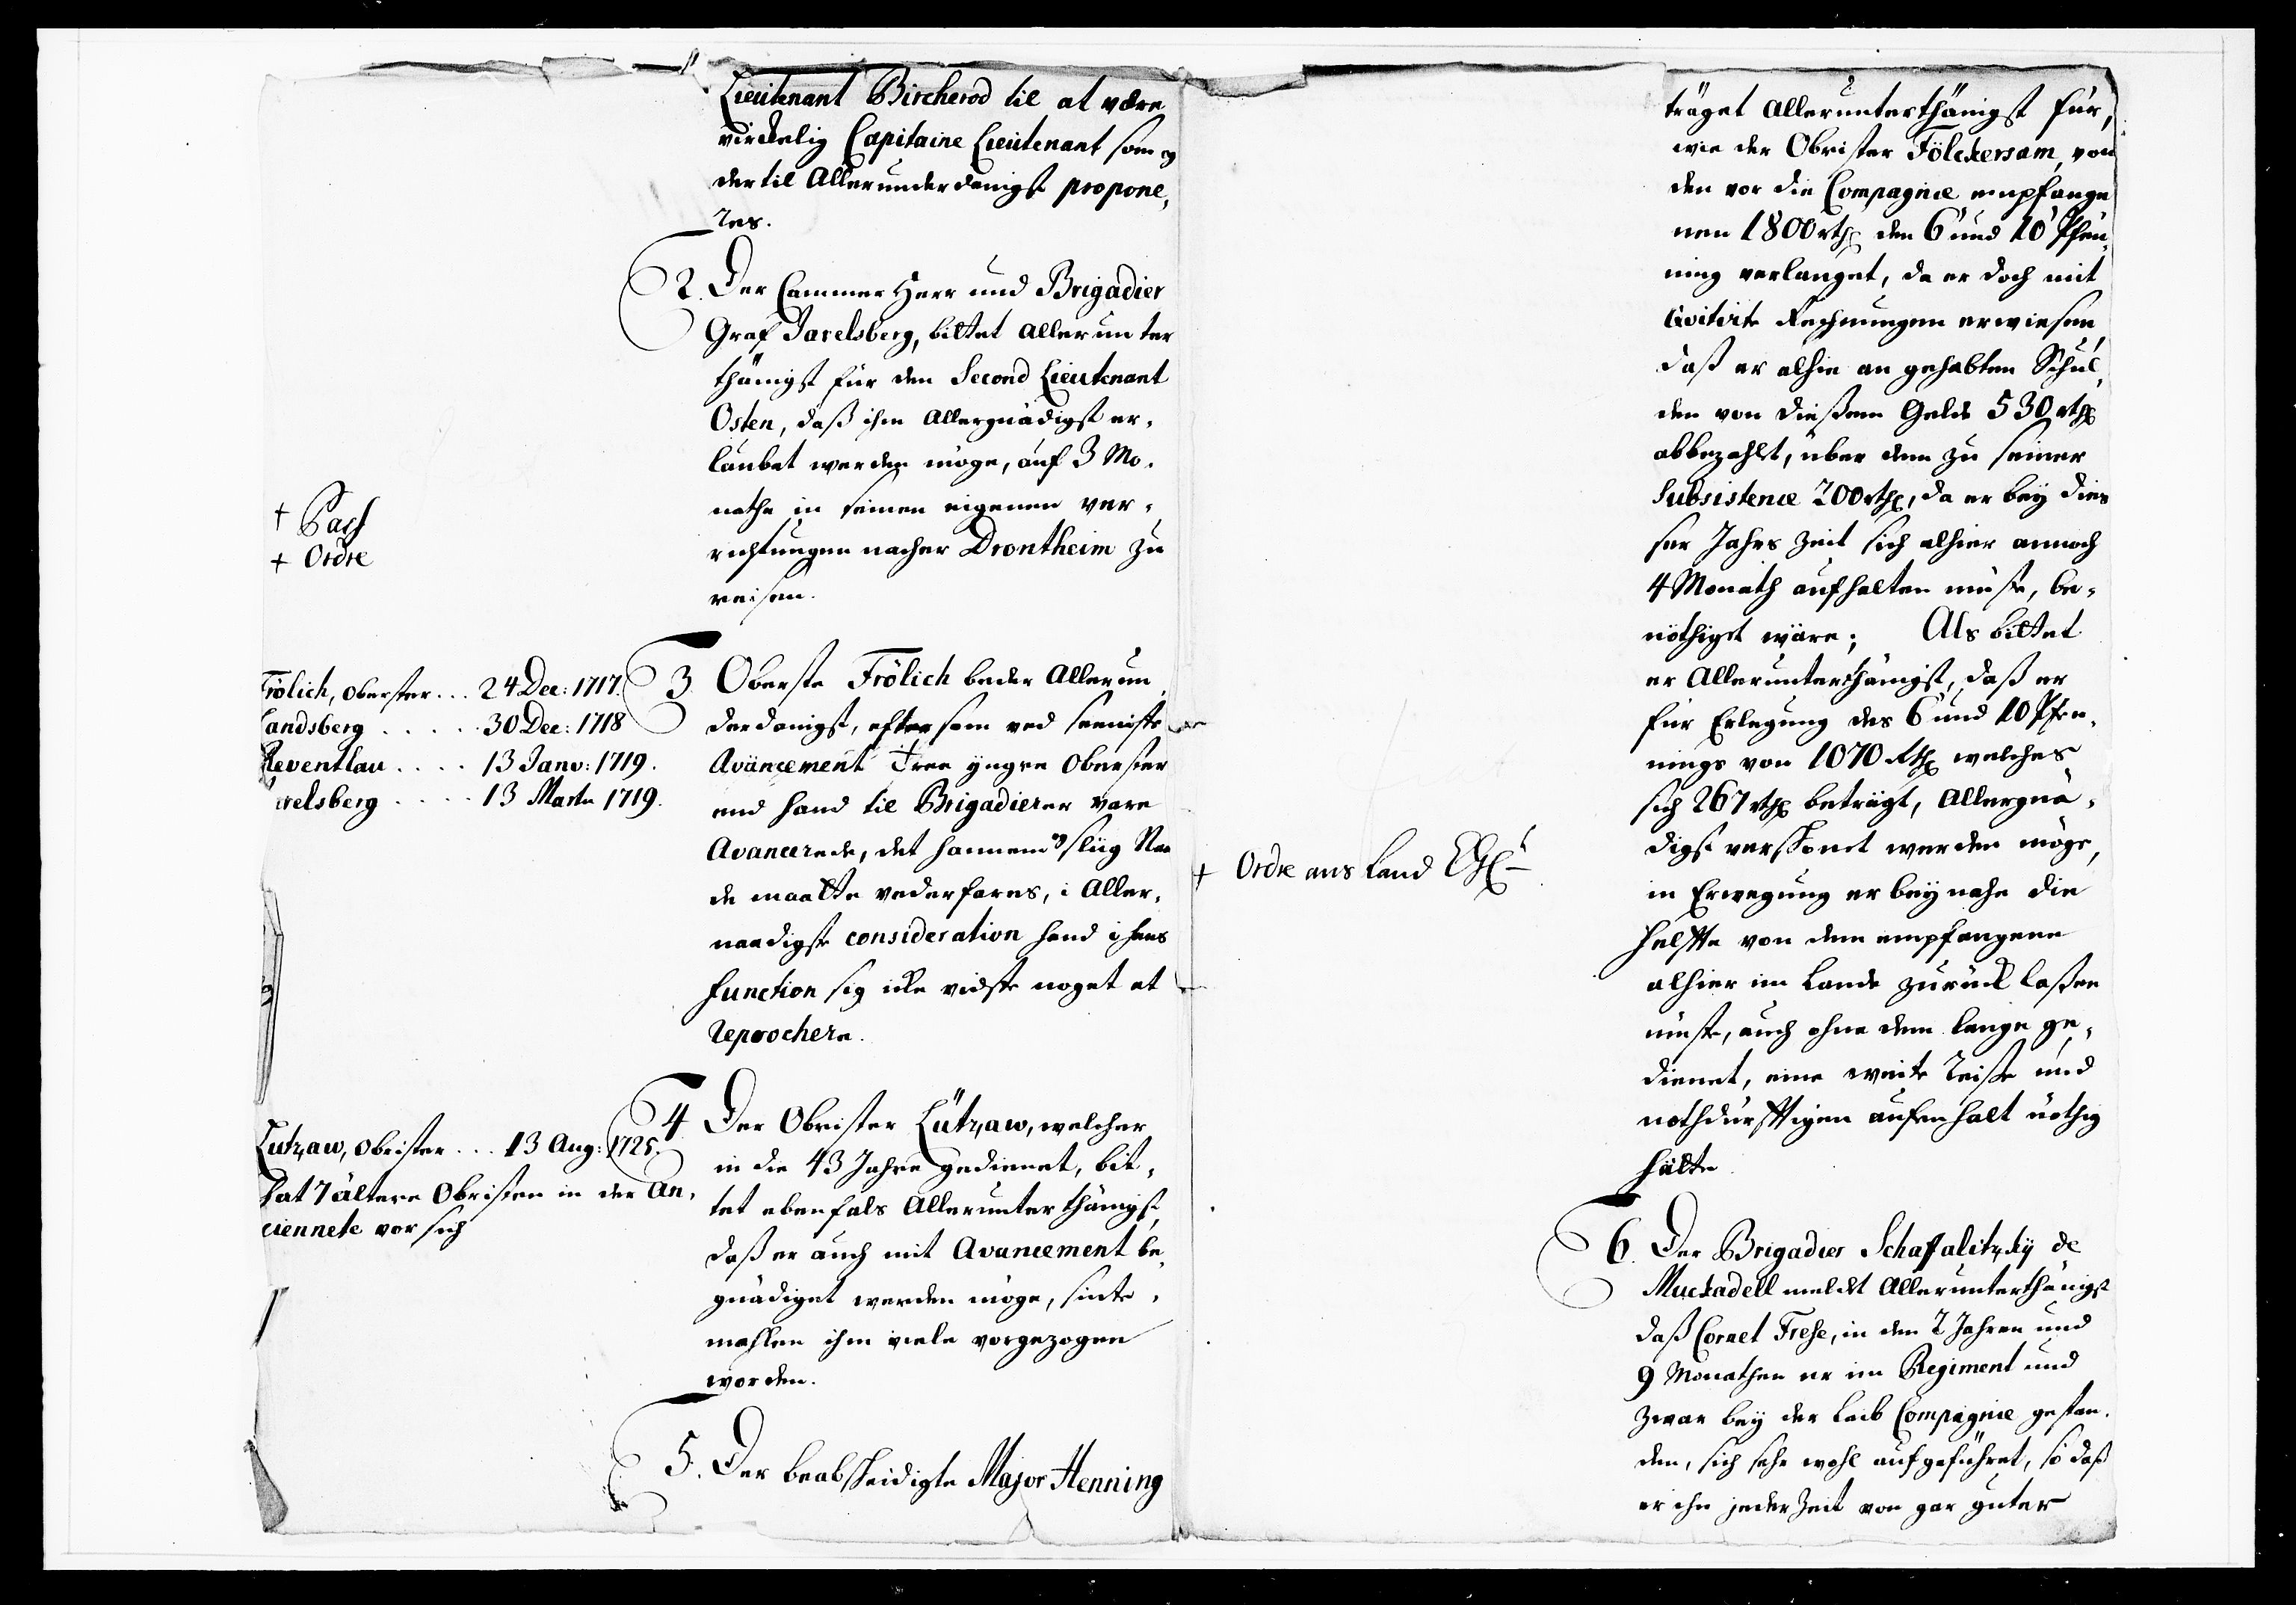 Lieutenant Bircherod til at være
virckelig Capitaine Lieutenant som og
dertil Allerunderdanigst propone,
res.
2. Der Cammer Herr und Brigadier
Graf Jarelsberg, bittet allerunter
thänigst für den Second Lieutenant
Osten, daß ihm Allergnädigst er,
laubet werden möge, auf 3 Mo,
nathe in seinen eigenen ver,
richtungen nacher Drontheim zu
reisen.
† Pass
† Ordre
3. Oberste Frölich beder Allerun
derdanigst, efftersom ved seeniste
Avancement Tree yngre Oberster
end hand til Brigadierer vare
Avancerede, det hannem og sliig Naa
de maatte vederfares, i Aller,
naadigste consideration hand i hans
function sig icke vidste noget at
reprochere.
Frölich, Oberster... 24 Dec: 1717.
Landsberg ..... 30 Dec: 1718
Reventlau .... 13 Janv: 1719.
relsberg .... 13 Martii 1719.
4 Der Obrister Lützaw, welcher
in die 43 Jahre gedienet, bit,
tet ebenfals Allerunterthänigst,
daß er auch mit Avancement be,
gnädiget werden möge, sinte,
mahlen ihm viele vorgezogen
worden.
Lutzaw, Obrister... 13 Aug: 1725.
hat 7 ältere Obristen in der An,
ciennete vor sich
5. Der beabscheidigte Major Henning
träget Allerunterthänigst für,
wie der Obrister Fölckersam, von
den vor die Compagnie empfange
nen 1800 rthl den 6 und 10 Pfen,
ning verlanget, da er doch mit
qvitirte Rechnungen erwiesen,
daß er alhie an gehabten Schul,
den von dießem Gelde 530 rthl
abbezahlt, über dem zu seiner
Subsistence 200 rthl, da er bey die
ser Jahrs Zeit sich alhier annoch
4 Monath aufhalten müste, be,
nöthiget wäre; Als bittet
er Allerunterthänigst, daß er
für Erlegung des 6 und 10 Pfen,
nings von 1070 Rthl welches
sich 267 rthl beträgt, Allergnä,
digst verschonet werden möge,
in Erwegung er bey nahe die
helffte von dem empfangene
alhier im Lande zurück laßen
müste, auch ohne dem lange ge,
dienet, eine weite reise und
nothdürfftigen aufenhalt nöthig
hätte.
† Ordre ans Land
6. Der Brigadier Schaffalitzky de
Muckadell meldet Allerunterthänigst
daß Cornet Frese, in den 2 Jahren und
9 Monathen er im Regiment und
zwar bey der Leib Compagnie gestan,
den, sich sehr wohl aufgeführet, so daß
er ihn jeder Zeit von gar guter